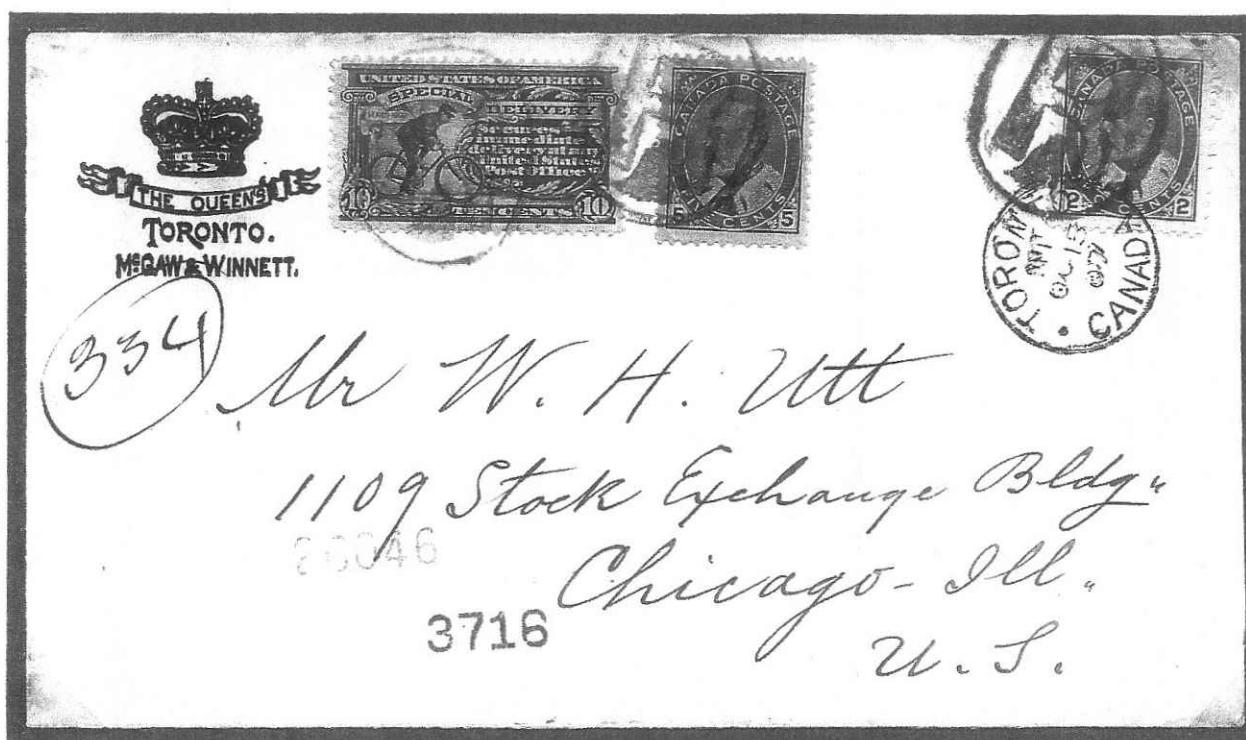 THE QUEEN'S
TORONTO.
McGAW & WINNETT.
UNITED STATES OF AMERICA
SPECIAL
DELIVERY
Secures
immediate
delivery at any
United States
Post Office
10 TEN CENTS 10
CANADA POSTAGE
5 CENTS 5
CANADA POSTAGE
2 CENTS 2
CANADA
334
Mr W. H. Utt
1109 Stock Exchange Bldg.
Chicago - Ill.
U. S.
3716